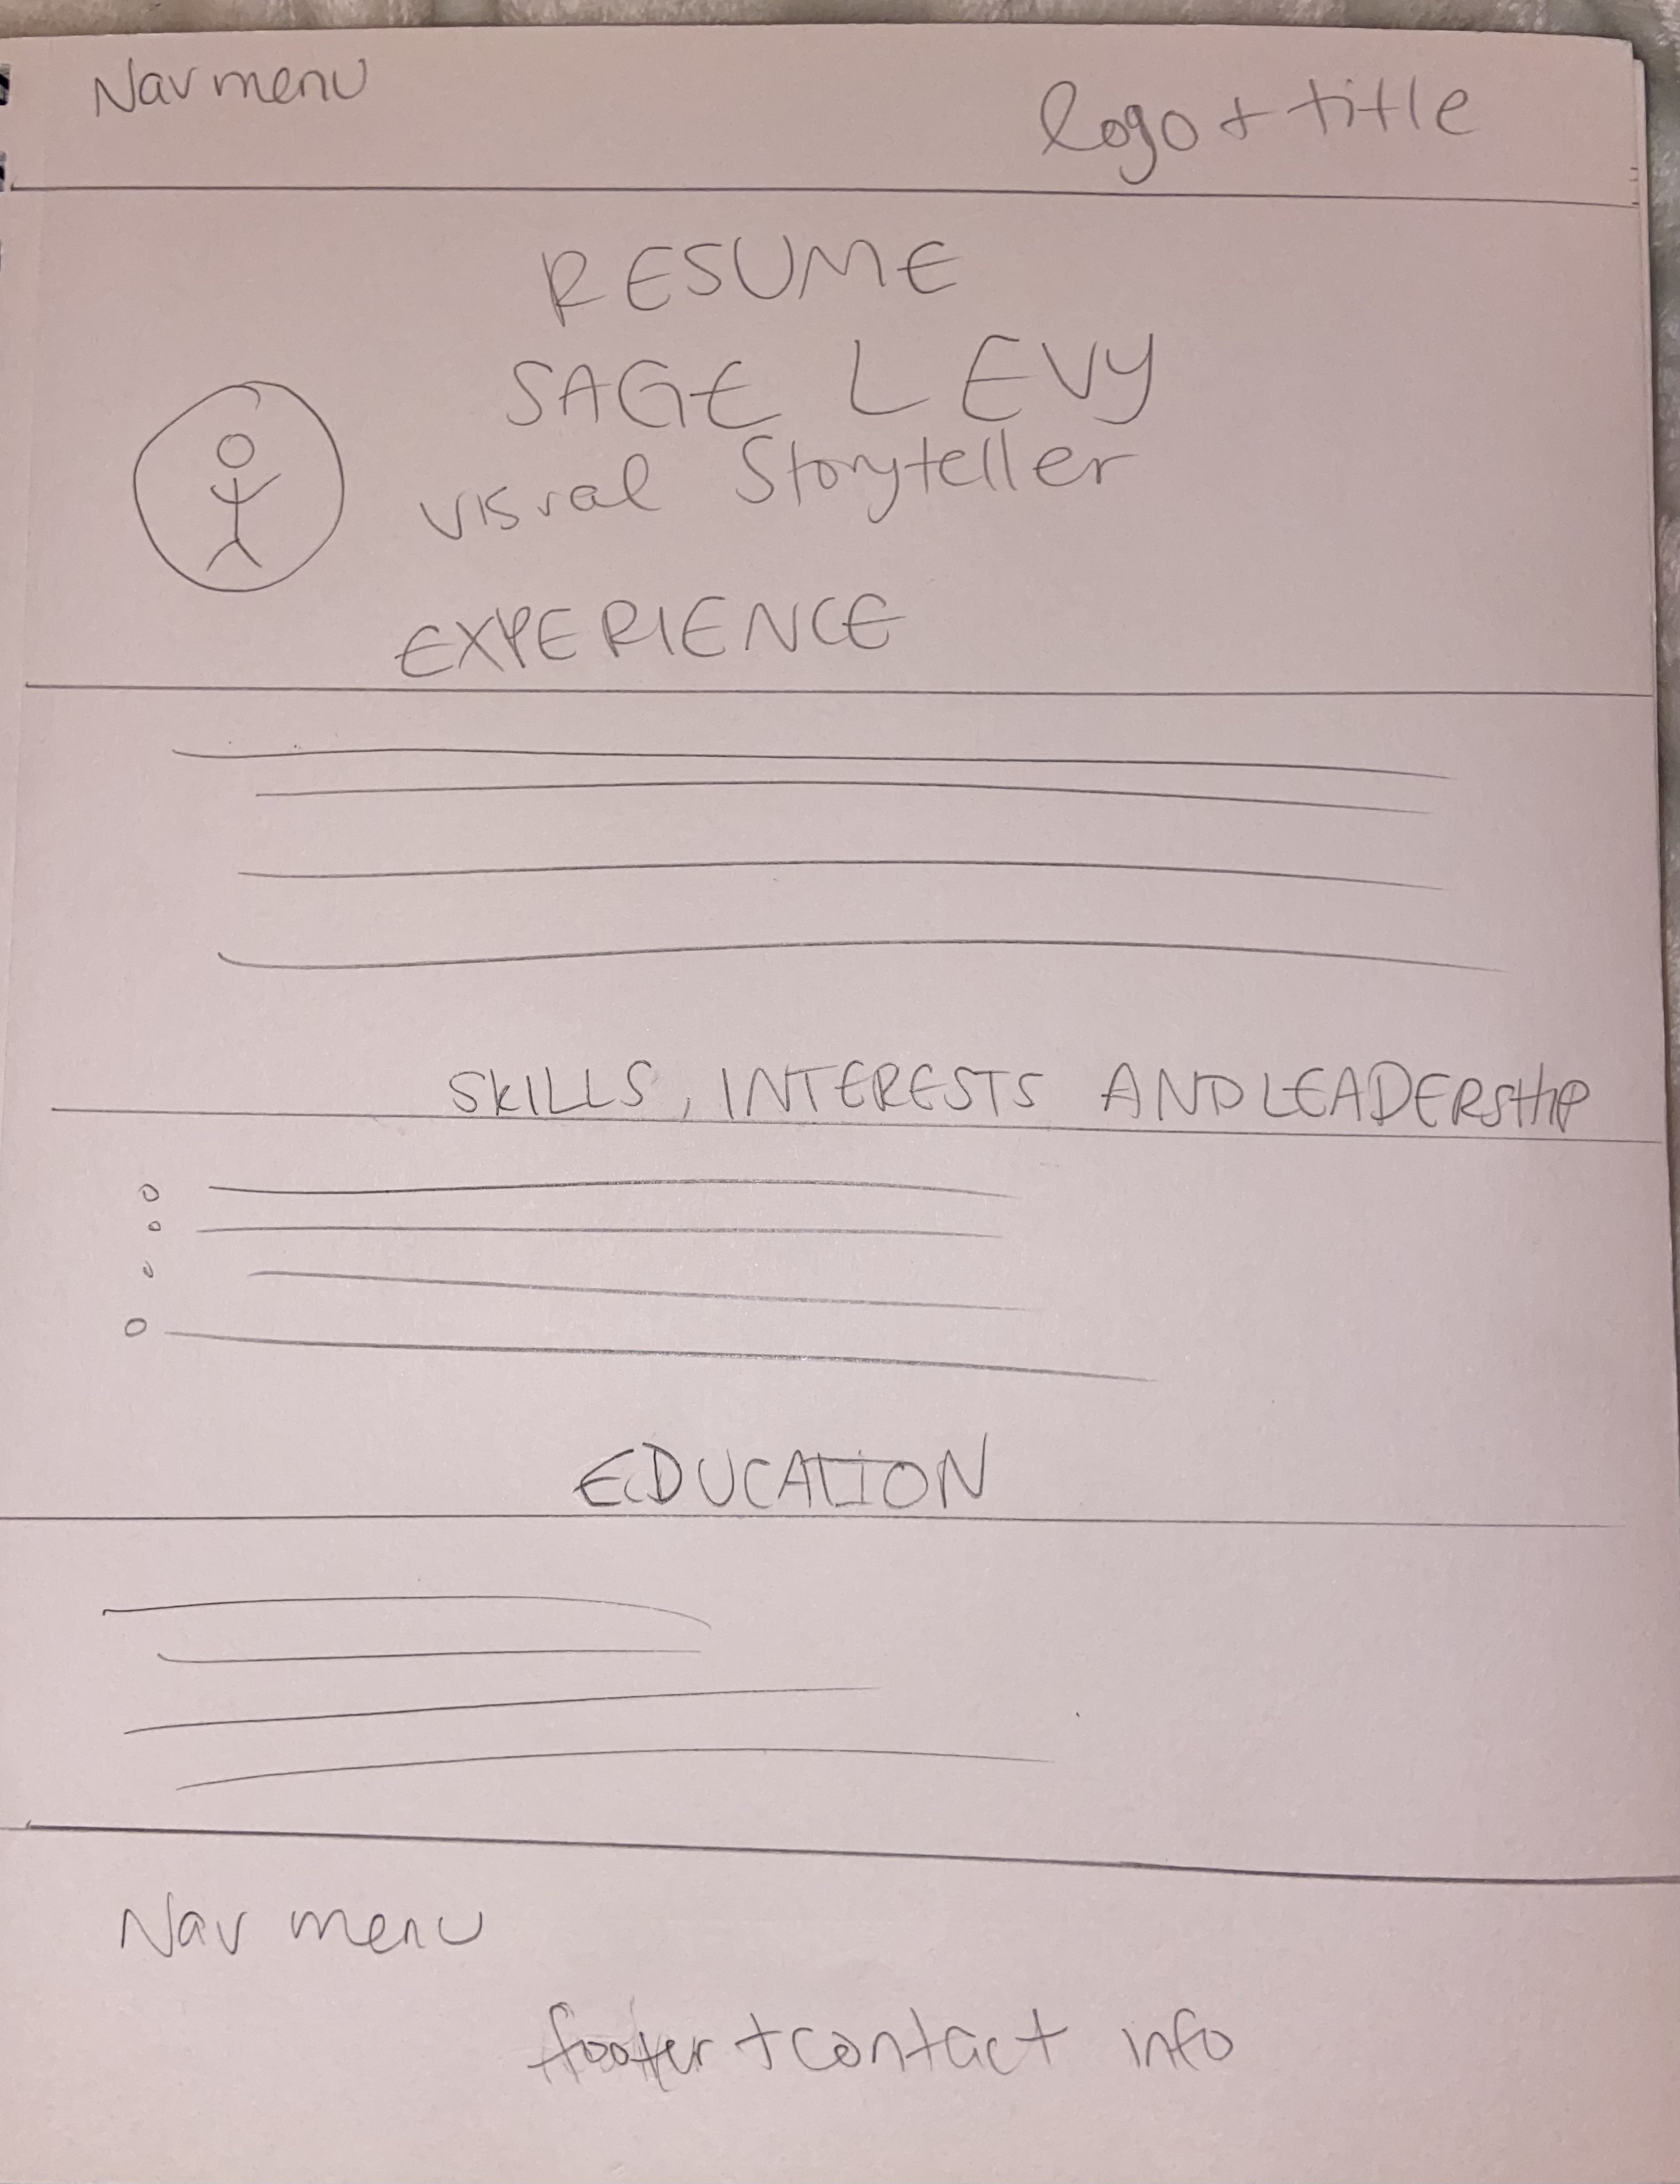 Nav menu
logo + title
RESUME
SAGE LEVY
visual Storyteller
EXPERIENCE
SKILLS, INTERESTS AND LEADERSHIP
EDUCATION
Nav menu
footer + contact info